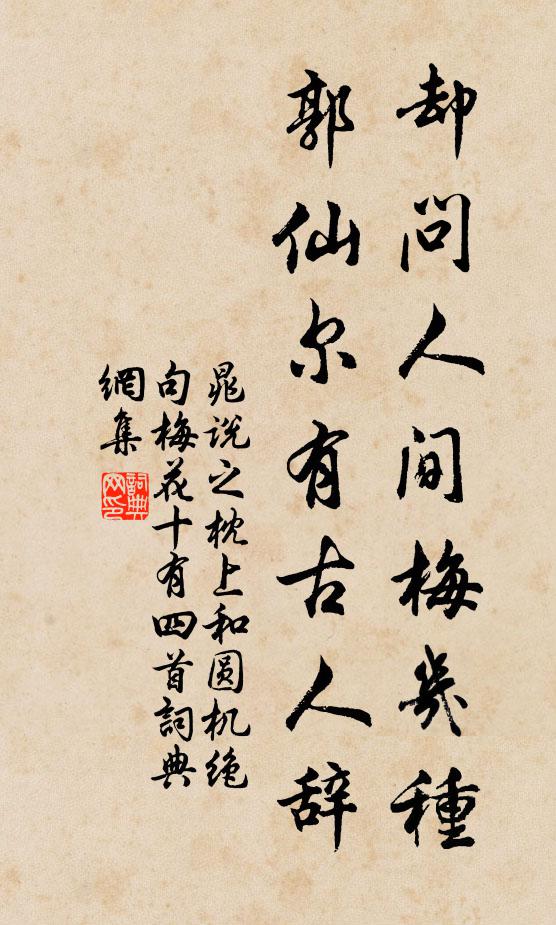 却问人间梅几種
郭仙尔有古人辞
晁说之枕上和圆机绝
句梅花十有四首詞典
網集
詞典
网印